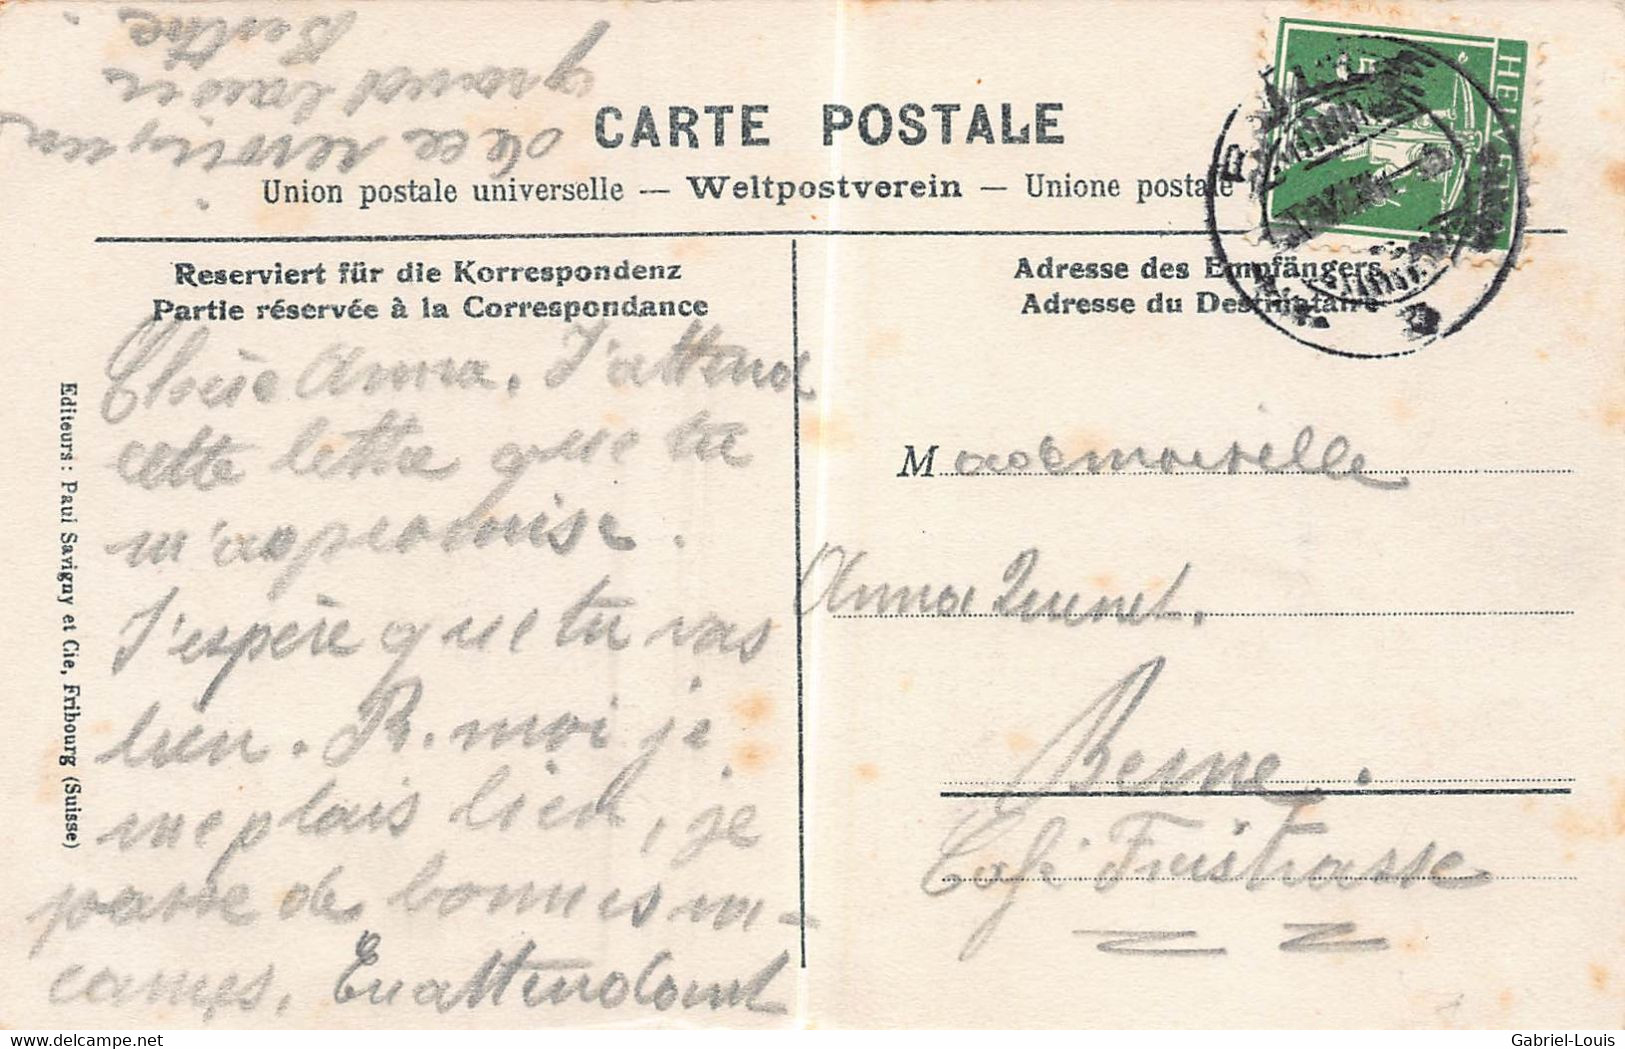 CARTE POSTALE
Union postale universelle — Weltpostverein — Unione postale
HELVETIA
Reserviert für die Korrespondenz
Partie réservée à la Correspondance
Adresse des Empfängers
Adresse du Destinataire
Editeurs: Paul Savigny et Cie, Fribourg (Suisse)
Chère Anna. J'attend
cette lettre que tu
m'as promise.
J'espère que tu vas
bien. R. moi je
me plais bien, je
passe de bonnes
En attendant
de ce revoir, un
grand baiser
Berthe.
Mademoiselle
Anna
Berne.
Café
Gabriel-Louis